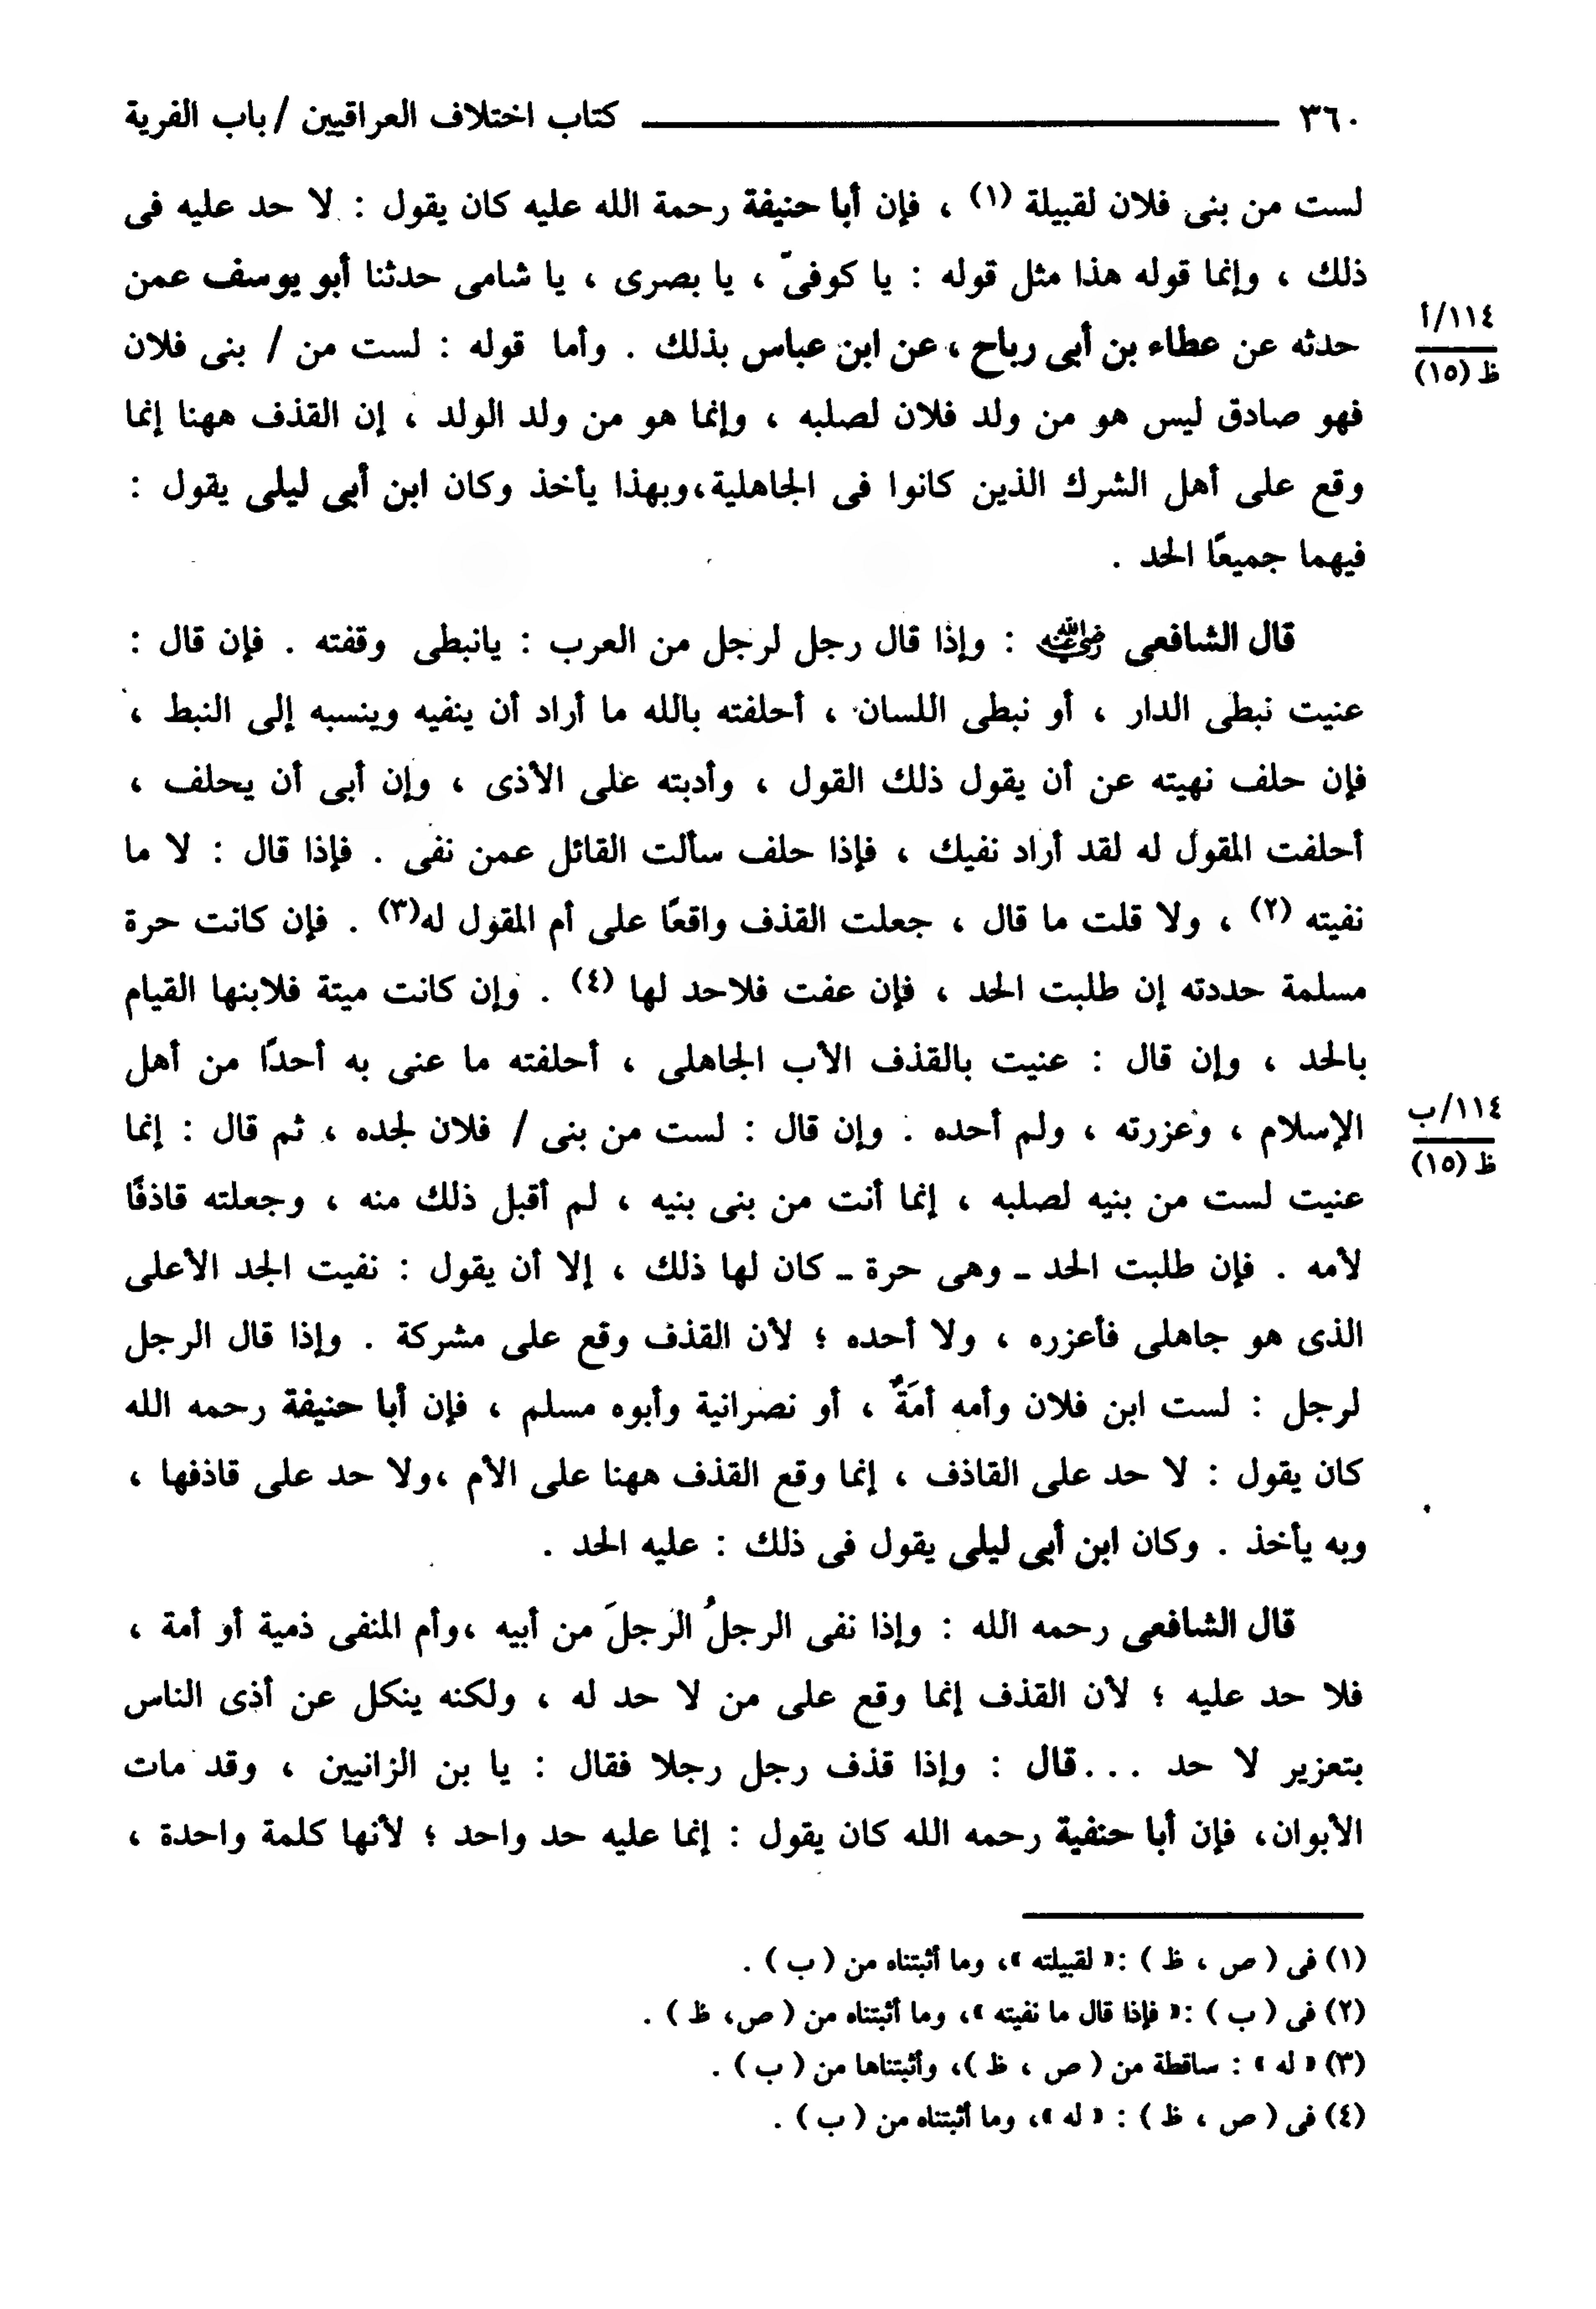 ٣٦٠ كتاب اختلاف العراقيين / باب الفرية
لست من بنى فلان لقبيلة (١) ، فإن أبا حنيفة رحمة الله عليه كان يقول : لا حد عليه فى
ذلك ، وإنما قوله هذا مثل قوله : يا كوفىّ ، يا بصرى ، يا شامى حدثنا أبو يوسف عمن
١١٤/أ
ظ (١٥)
حدثه عن عطاء بن أبى رباح ، عن ابن عباس بذلك . وأما قوله : لست من / بنى فلان
فهو صادق ليس هو من ولد فلان لصلبه ، وإنما هو من ولد الولد ، إن القذف ههنا إنما
وقع على أهل الشرك الذين كانوا فى الجاهلية، وبهذا يأخذ وكان ابن أبى ليلى يقول :
فيهما جميعًا الحد .
قال الشافعى رضي الله عنه : وإذا قال رجل لرجل من العرب : يانبطى وقفته . فإن قال :
عنيت نبطى الدار ، أو نبطى اللسان ، أحلفته بالله ما أراد أن ينفيه وينسبه إلى النبط ،
فإن حلف نهيته عن أن يقول ذلك القول ، وأدبته على الأذى ، وإن أبى أن يحلف ،
أحلفت المقول له لقد أراد نفيك ، فإذا حلف سألت القائل عمن نفى . فإذا قال : لا ما
نفيته (٢) ، ولا قلت ما قال ، جعلت القذف واقعًا على أم المقول له(٣) . فإن كانت حرة
مسلمة حددته إن طلبت الحد ، فإن عفت فلاحد لها (٤) . وإن كانت ميتة فلابنها القيام
بالحد ، وإن قال : عنيت بالقذف الأب الجاهلى ، أحلفته ما عنى به أحدًا من أهل
١١٤/ب
ظ (١٥)
الإسلام ، وعزرته ، ولم أحده . وإن قال : لست من بنى / فلان لجده ، ثم قال : إنما
عنيت لست من بنيه لصلبه ، إنما أنت من بنى بنيه ، لم أقبل ذلك منه ، وجعلته قاذفًا
لأمه . فإن طلبت الحد ـ وهى حرة ـ كان لها ذلك ، إلا أن يقول : نفيت الجد الأعلى
الذى هو جاهلى فأعزره ، ولا أحده ؛ لأن القذف وقع على مشركة . وإذا قال الرجل
لرجل : لست ابن فلان وأمه أمَةٌ ، أو نصرانية وأبوه مسلم ، فإن أبا حنيفة رحمه الله
كان يقول : لا حد على القاذف ، إنما وقع القذف ههنا على الأم ،ولا حد على قاذفها ،
وبه يأخذ . وكان ابن أبى ليلى يقول فى ذلك : عليه الحد .
قال الشافعى رحمه الله : وإذا نفى الرجلُ الرجلَ من أبيه ،وأم المنفى ذمية أو أمة ،
فلا حد عليه ؛ لأن القذف إنما وقع على من لا حد له ، ولكنه ينكل عن أذى الناس
بتعزير لا حد ...قال : وإذا قذف رجل رجلا فقال : يا بن الزانيين ، وقد مات
الأبوان، فإن أبا حنفية رحمه الله كان يقول : إنما عليه حد واحد ؛ لأنها كلمة واحدة ،
(١) فى ( ص ، ظ ) :« لقبيلته »، وما أثبتناه من ( ب ) .
(٢) فى ( ب ) :« فإذا قال ما نفيته »، وما أثبتناه من ( ص، ظ ) .
(٣) « له » : ساقطة من ( ص ، ظ )، وأثبتناها من ( ب ) .
(٤) فى ( ص ، ظ ) : « له »، وما أثبتناه من ( ب ) .